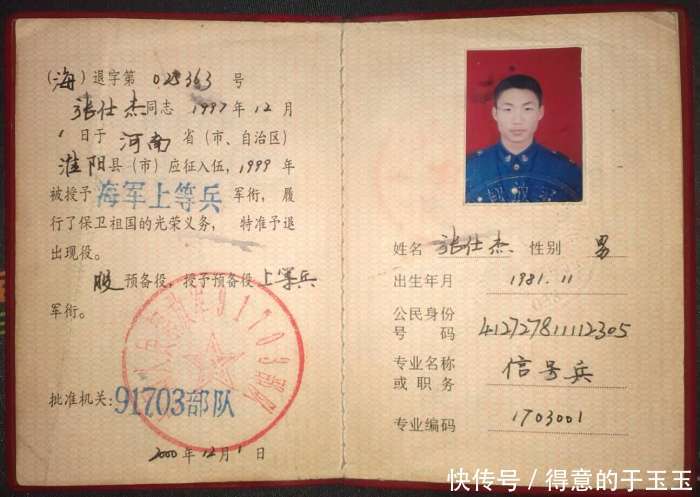 (海)退字第 025363 号
张仕杰同志 1997年12月
1日于 河南 省(市、自治区)
淮阳县(市)应征入伍,1999年
被授予 海军上等兵 军衔,履
行了保卫祖国的光荣义务,特准予退
出现役。
服预备役,授予预备役上等兵
军衔。
91703部队
批准机关:91703部队
2000年12月1日
姓名 张仕杰 性别 男
出生年月 1981.11
公民身份
号码 412727811112305
专业名称
或职务 信号兵
专业编码 1703001
快传号/得意的于玉玉